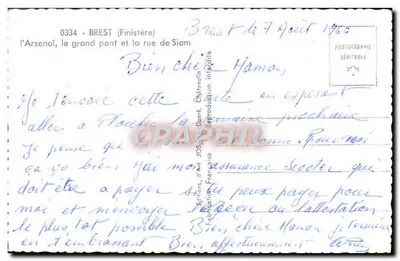 0334 - BREST (Finistère)
l'Arsenal, le grand pont et la rue de Siam
Brest le 7 Août 1960
Bien chère Maman,
Je t'envoie cette carte en espérant
aller a la semaine prochaine
Je pense que bonne. Pour moi
ça va bien Mai mon assurance Scooter que
doit être a payer si tu peux payer pour
moi et m'envoyer le reçu ou l'attestation
le plus tot possible Bien chère Maman je termine
en t'embrassant Bien affectueusement
PHOTOGRAPHIE
VÉRITABLE
CPRPHIL